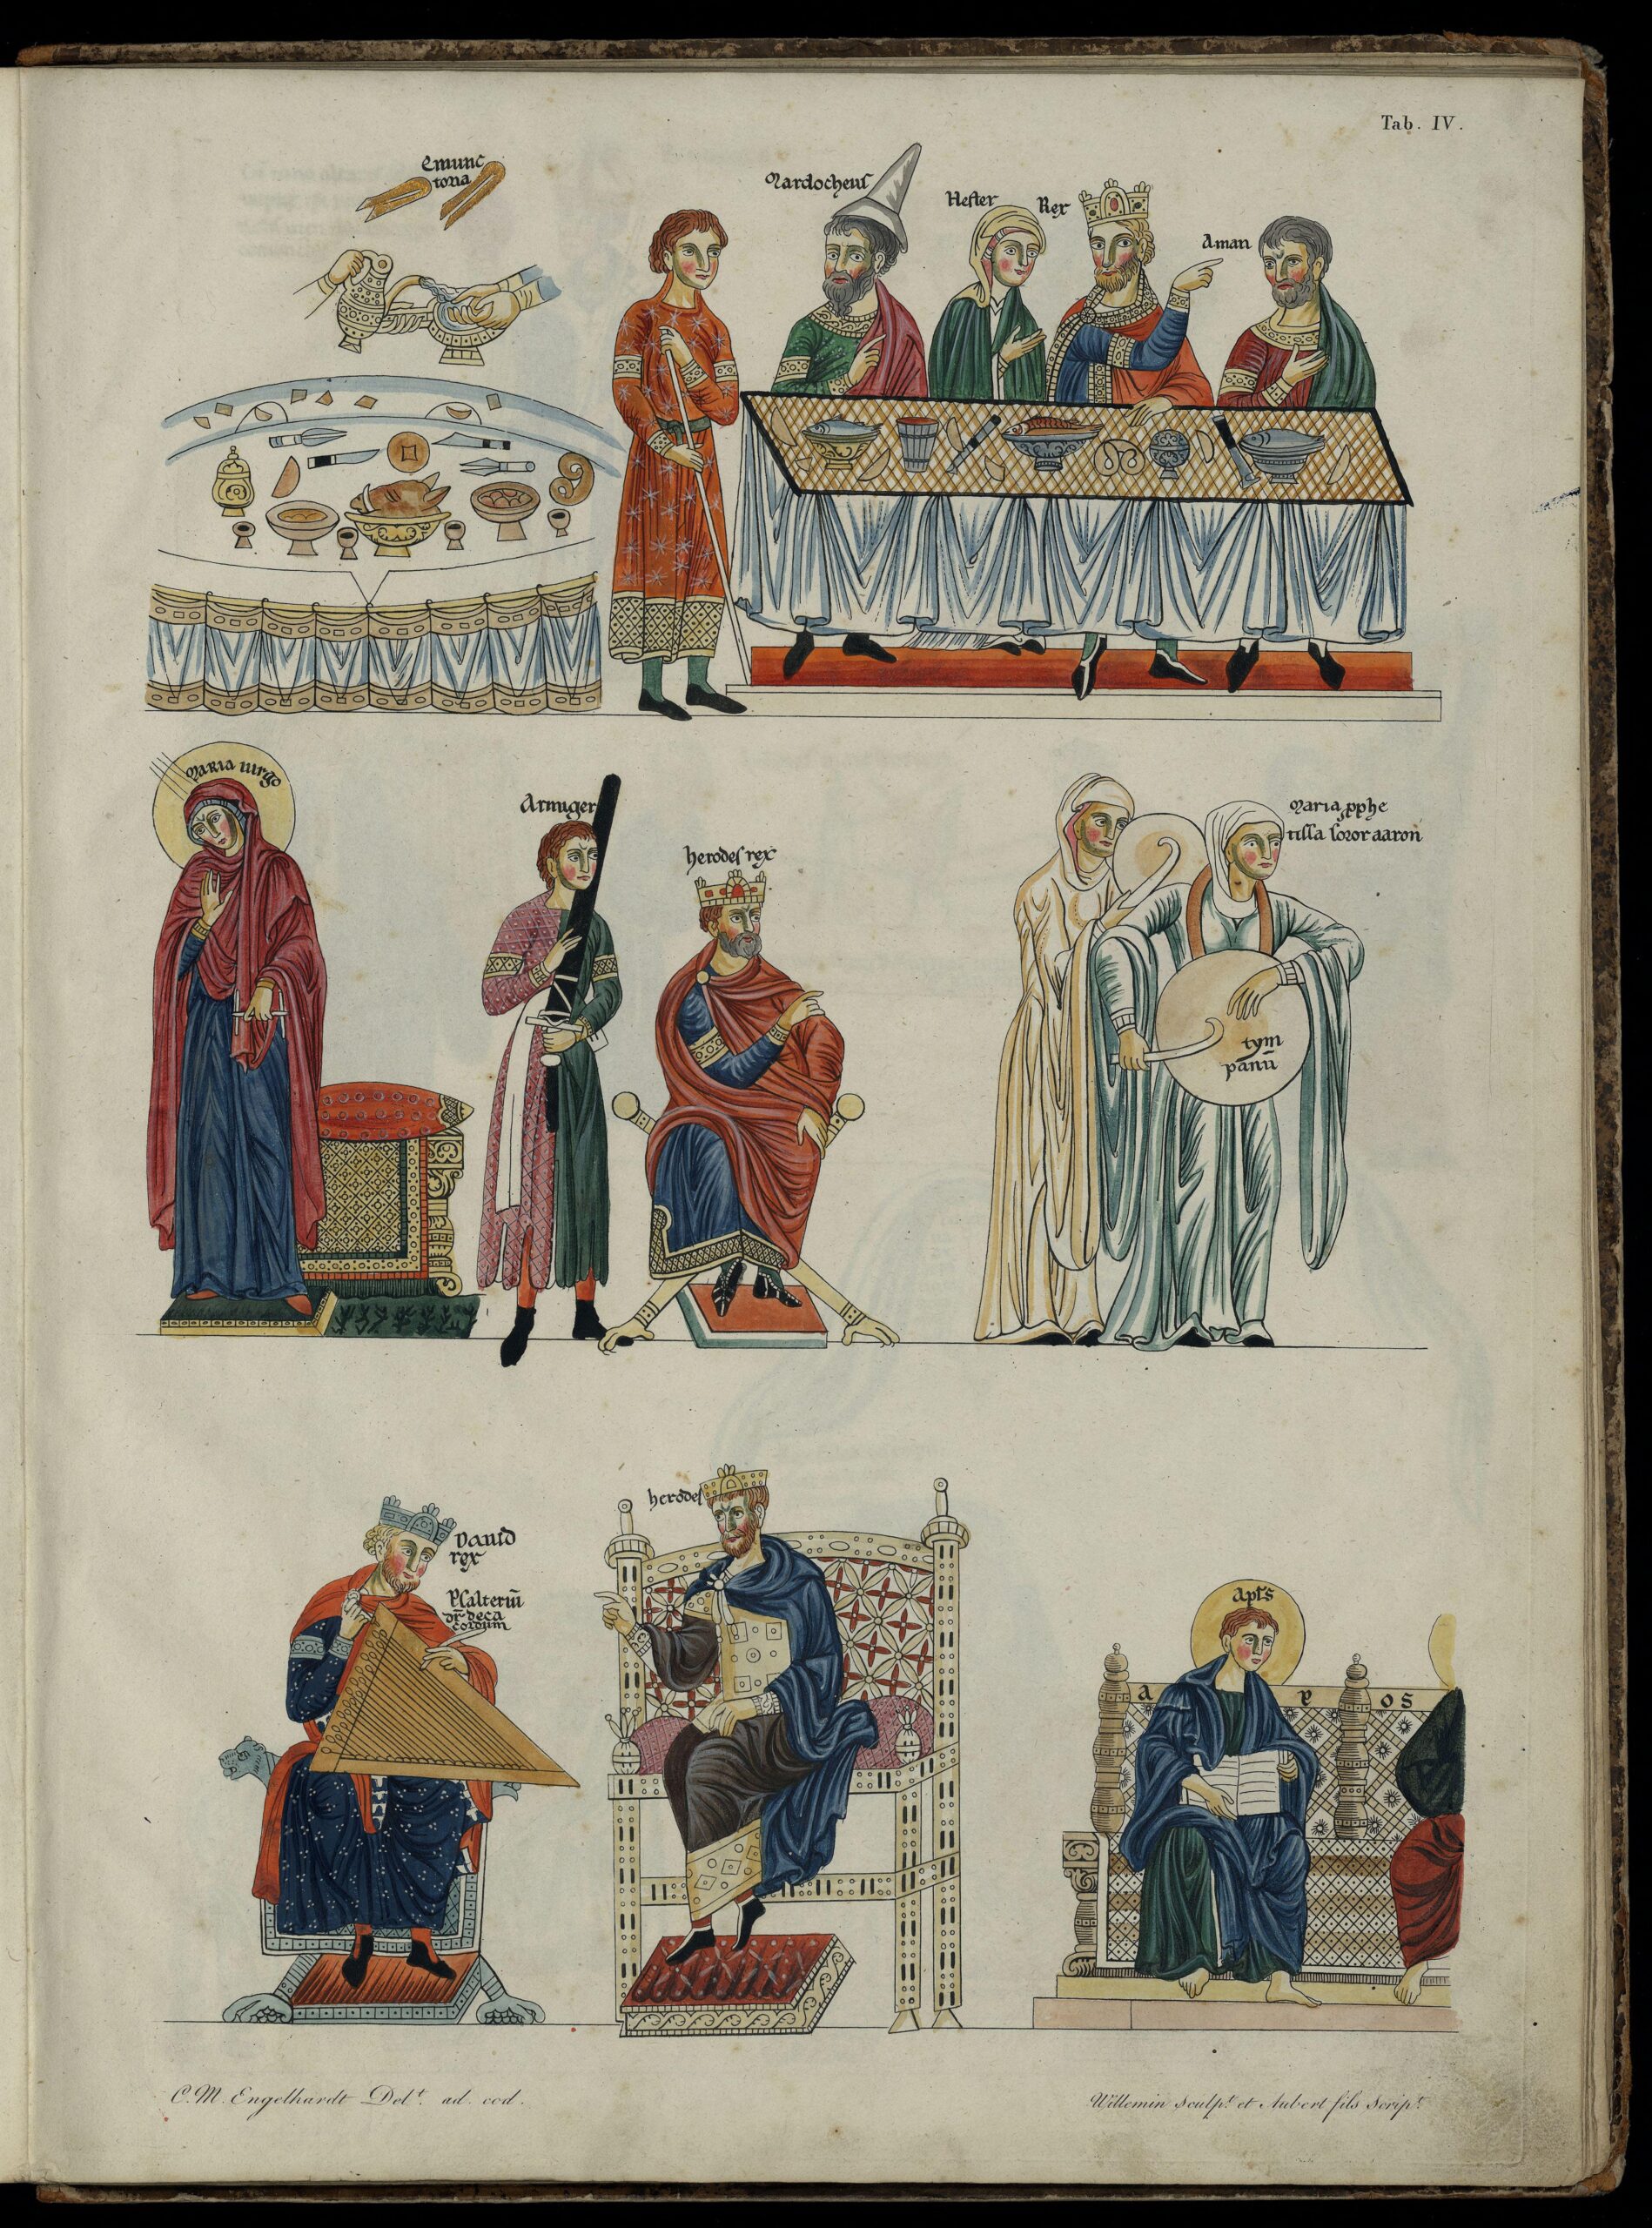 Tab. IV.
emunc
toria
Mardocheus
Hester
Rex
Aman
MARIA uirgo
Armiger
herodes rex
Maria pphe
tissa soror aaron
tym
panū
Dauid
rex
Psalteriū
dr̄ deca
cordum
herodes
apls
a p os
C. M. Engelhardt Delt. ad. cod.
Willemin Sculpt. et Aubert fils Script.